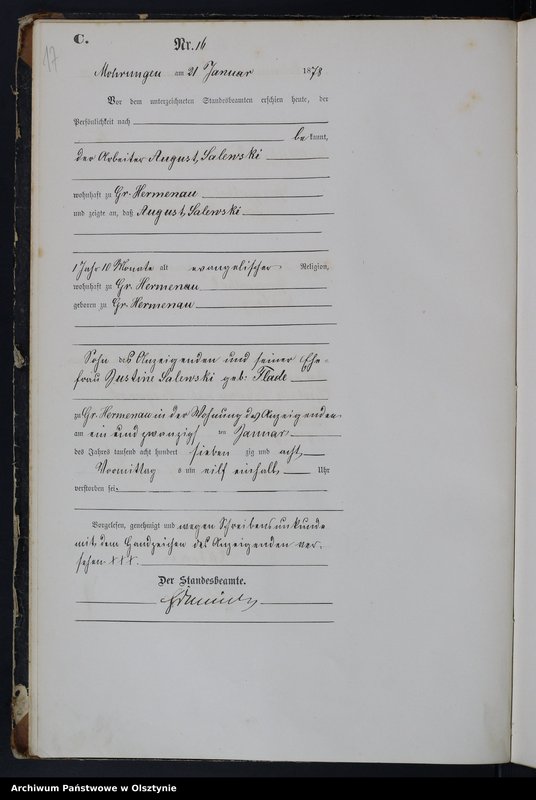 17
C.
Nr. 16
Mohrungen am 21 Januar 1878
Vor dem unterzeichneten Standesbeamten erschien heute, der
Persönlichkeit nach
bekannt,
der Arbeiter August Salewski
wohnhaft zu Gr. Hermenau
und zeigte an, daß August Salewski
1 Jahr 10 Monate alt evangelischer Religion,
wohnhaft zu Gr. Hermenau
geboren zu Gr. Hermenau
Sohn des Anzeigenden und seiner Ehe-
frau Justine Salewski geb: Flade
zu Gr. Hermenau in der Wohnung des Anzeigenden
am ein und zwanzigsten Januar
des Jahres tausend acht hundert siebenzig und acht
Vormittags um eilf einhalb Uhr
verstorben sei.
Vorgelesen, genehmigt und wegen Schreibensunkunde
mit dem Handzeichen des Anzeigenden ver-
sehen. +++.
Der Standesbeamte.
Archiwum Państwowe w Olsztynie